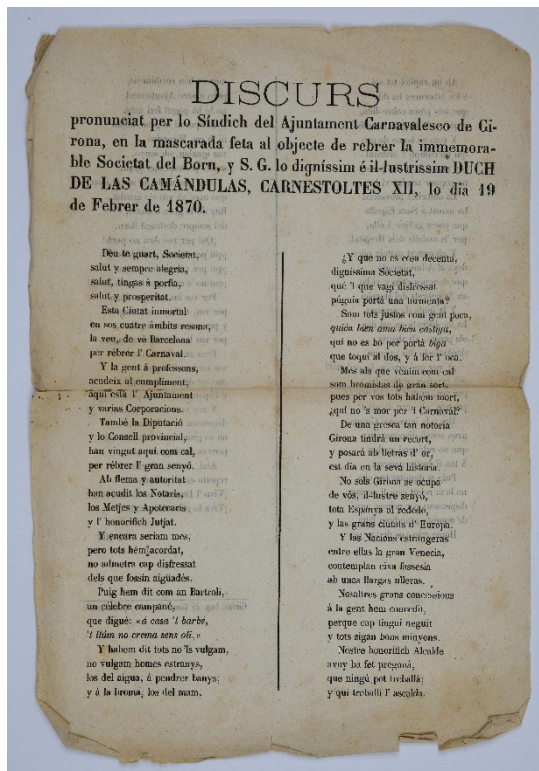 DISCURS
pronunciat per lo Síndich del Ajuntament Carnavalesco de Gi-
rona, en la mascarada feta al objecte de rebrer la immemora-
ble Societat del Born, y S. G. lo digníssim é il-lustríssim DUCH
DE LAS CAMÁNDULAS, CARNESTOLTES XII, lo dia 19
de Febrer de 1870.
Déu te guart, Societat,
salut y sempre alegria,
salut, tingas á porfia,
salut y prosperitat.
Esta Ciutat inmortal
en sos cuatre ámbits resona,
la veu, de vé Barcelona
per rébrer l' Carnaval.
Y la gent á professons,
acudeix al cumpliment;
aquí está l' Ajuntament
y varias Corporacions.
També la Diputació
y lo Consell provincial,
han vingut aquí com cal,
per rébrer l' gran senyó.
Ab flema y autoritat
han acudit los Notaris,
los Metjes y Apotecaris
y l' honorifich Jutjat.
Y encara seriam mes,
pero tots hem acordat,
no admetre cap disfressat
dels que fossin aiguadés.
Puig hem dit com an Bartroli,
un célebre campané,
que digué: «á casa 'l barbé,
't llúm no crema sens oli.»
Y habem dit tots no 'ls vulgam,
no vulgam homes estranys,
los del aigua, á pendrer banys;
y á la broma, los del mam.
¿Y que no es cosa decenta,
digníssima Societat,
qué 'l que vagi disfressat
púguia portá una tormenta?
Som tots justos com gent poca,
quién bien ama bien castiga,
qui no es bo per portá biga
que toqui al dos, y á fer l' oca.
Més als que venim com cal
som bromistas de gran sort,
pues per vos tots habem mort,
¿qui no 's mor per 'l Carnaval?
De una gresca tan notoria
Girona tindrá un recort,
y posará ab lletras d' or,
est dia en la sevá historia.
No sols Girona se ocupa
de vós, il-lustre senyó,
tota Espanya al rededó,
y las grans ciutats d' Europa.
Y las Nacions estrangeras
entre ellas la gran Venecia,
contemplan eixa fassesia
ab unas llargas ulleras.
Nosaltres grans concessions
á la gent hem concedit,
perque cap tingui neguit
y tots sigan bons minyons.
Nostre honorifich Alcalde
avuy ha fet pregoná,
que ningú pot treballá;
y qui treballi l' ascalda.